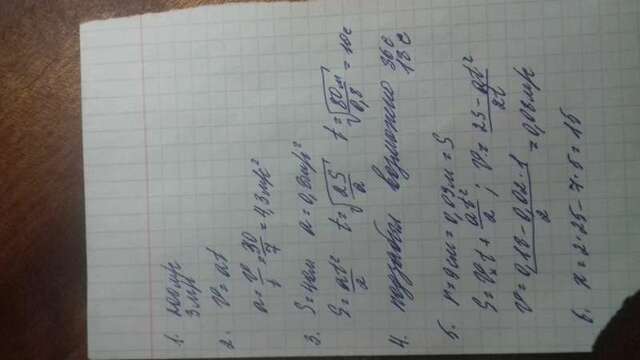 1. 200 м/с
3 м/с
2. V = at
a = V/t = 30/7 = 4,3 м/с²
3. S = 40м a = 0,8 м/с²
S = at²/2 t = √(2S/a) t = √(80м/0,8) = 10с
4. подзабыл возможно 36с
18с
5. r = 9см = 0,09м = S
S = V₀t + at²/2 ; V = 2S - at²/2t
V = 0,18 - 0,02·1/2 = 0,08 м/с
6. x = 2·25 - 7·5 = 15